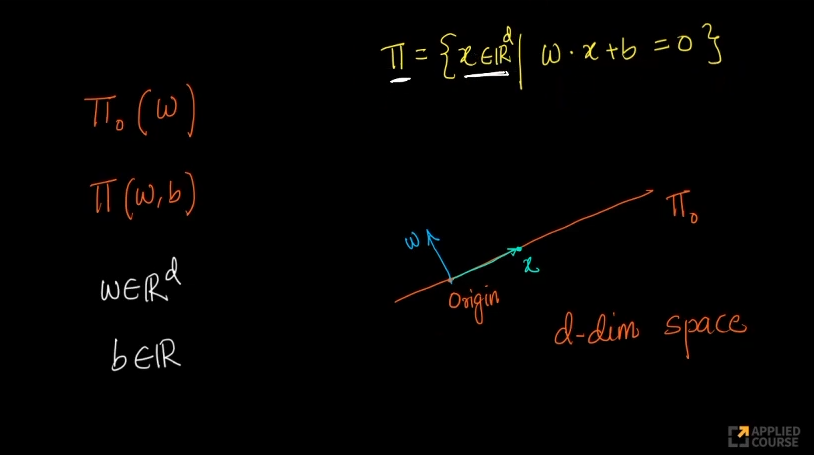 π = {x ∈ ℝᵈ | ω · x + b = 0}
π₀(ω)
π(ω, b)
ω ∈ ℝᵈ
b ∈ ℝ
π₀
ω
x
Origin
d-dim space
APPLIED
COURSE